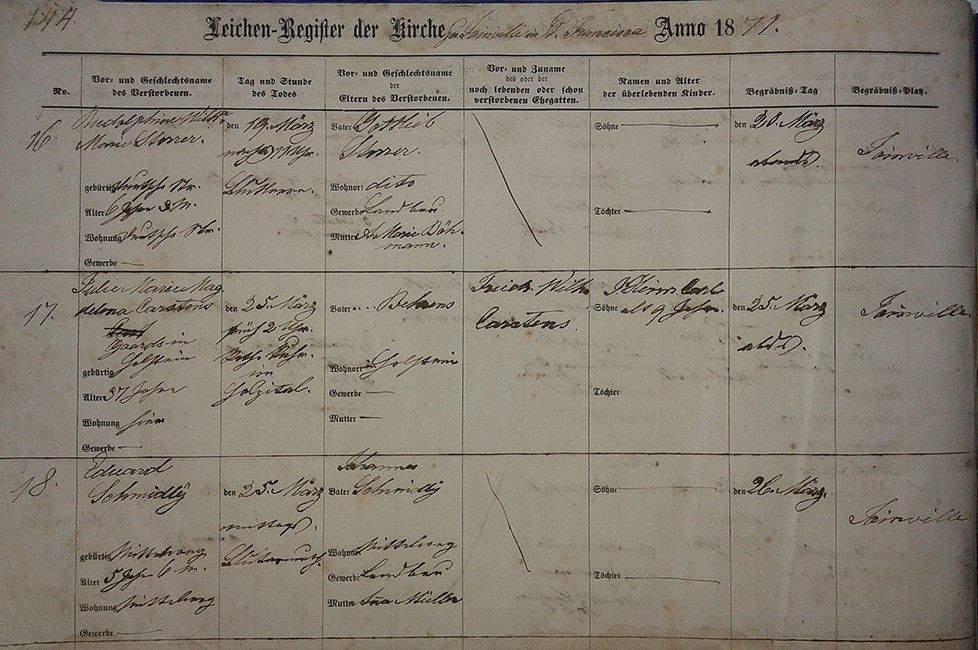 144.
Leichen-Register der Kirche zu Joinville in S. Francisca Anno 1871.
No.
Vor- und Geschlechtsname
des Verstorbenen.
Tag und Stunde
des Todes
Vor- und Geschlechtsname
der
Eltern des Verstorbenen.
Vor- und Zuname
des oder der
noch lebenden oder schon
verstorbenen Ehegatten.
Namen und Alter
der überlebenden Kinder.
Begräbniß-Tag
Begräbniß-Platz.
16
Marie Storrer.
gebürtig deutsche Str.
Alter 6 Jahr 8 M.
Wohnung deutsche Str.
Gewerbe —
den 19. März
nachts 11 Uhr.
Vater Gottlieb
Storrer.
Wohnort dito
Gewerbe Landbau.
Mutter Marie Böh-
mann.
Söhne —
Töchter —
den 20. März
abends.
Joinville.
17.
Marie Mag
dalena Carstens
in
Holstein
gebürtig
Alter 37 Jahr
Wohnung hier
Gewerbe —
den 25. März
früh 2 Uhr.
im
Hospital.
Vater Behrens
Wohnort Holstein
Gewerbe —
Mutter —
Friedr. Wilh.
Carstens.
Söhne alt 9 Jahr.
Töchter
den 25. März
abds.
Joinville
18.
Eduard
Schmidly
gebürtig Mittelweg
Alter 5 Jahr 6 M.
Wohnung Mittelweg
Gewerbe —
den 25. März
mittags.
Johannes
Vater Schmidly
Wohnort Mittelweg
Gewerbe Landbau
Mutter Ana Müller
Söhne —
Töchter —
den 26. März.
Joinville